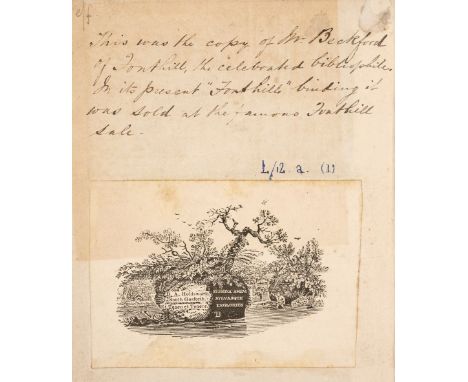 This was the copy of Mr Beckford
of Fonthill, the celebrated bibliophile.
In its present "Fonthill" binding it
was sold at the famous Fonthill
sale.
L/12 a. (1)
FLUMINA AMEM
SYLVASQUE
INGLORIUS